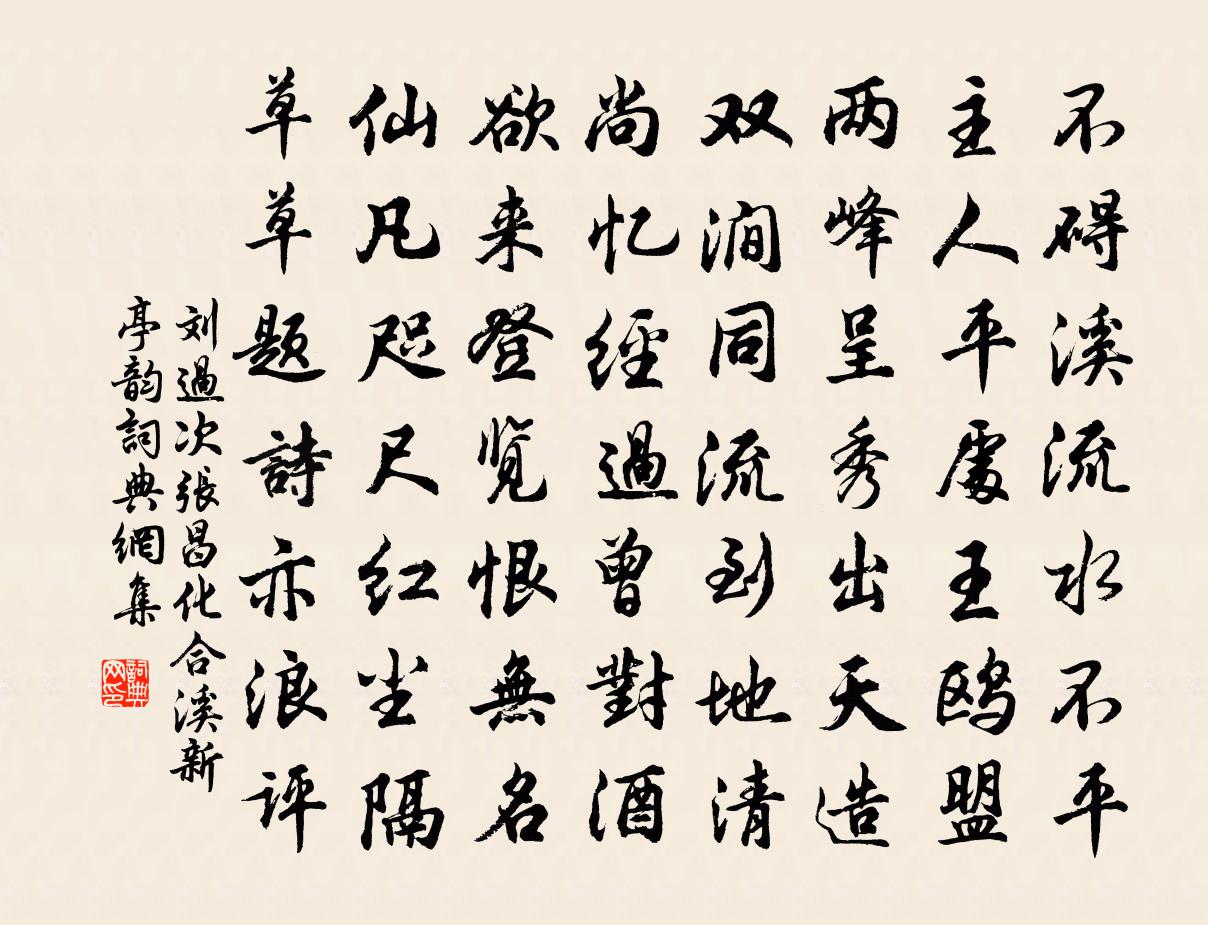 不碍溪流水不平
主人平處王鸥盟
两峰呈秀出天造
双涧同流到地清
尚忆經過曾對酒
欲来登览恨無名
仙凡咫尺红尘隔
草草题詩亦浪评
刘過次張昌化合溪新
亭韵詞典網集
詞典网印